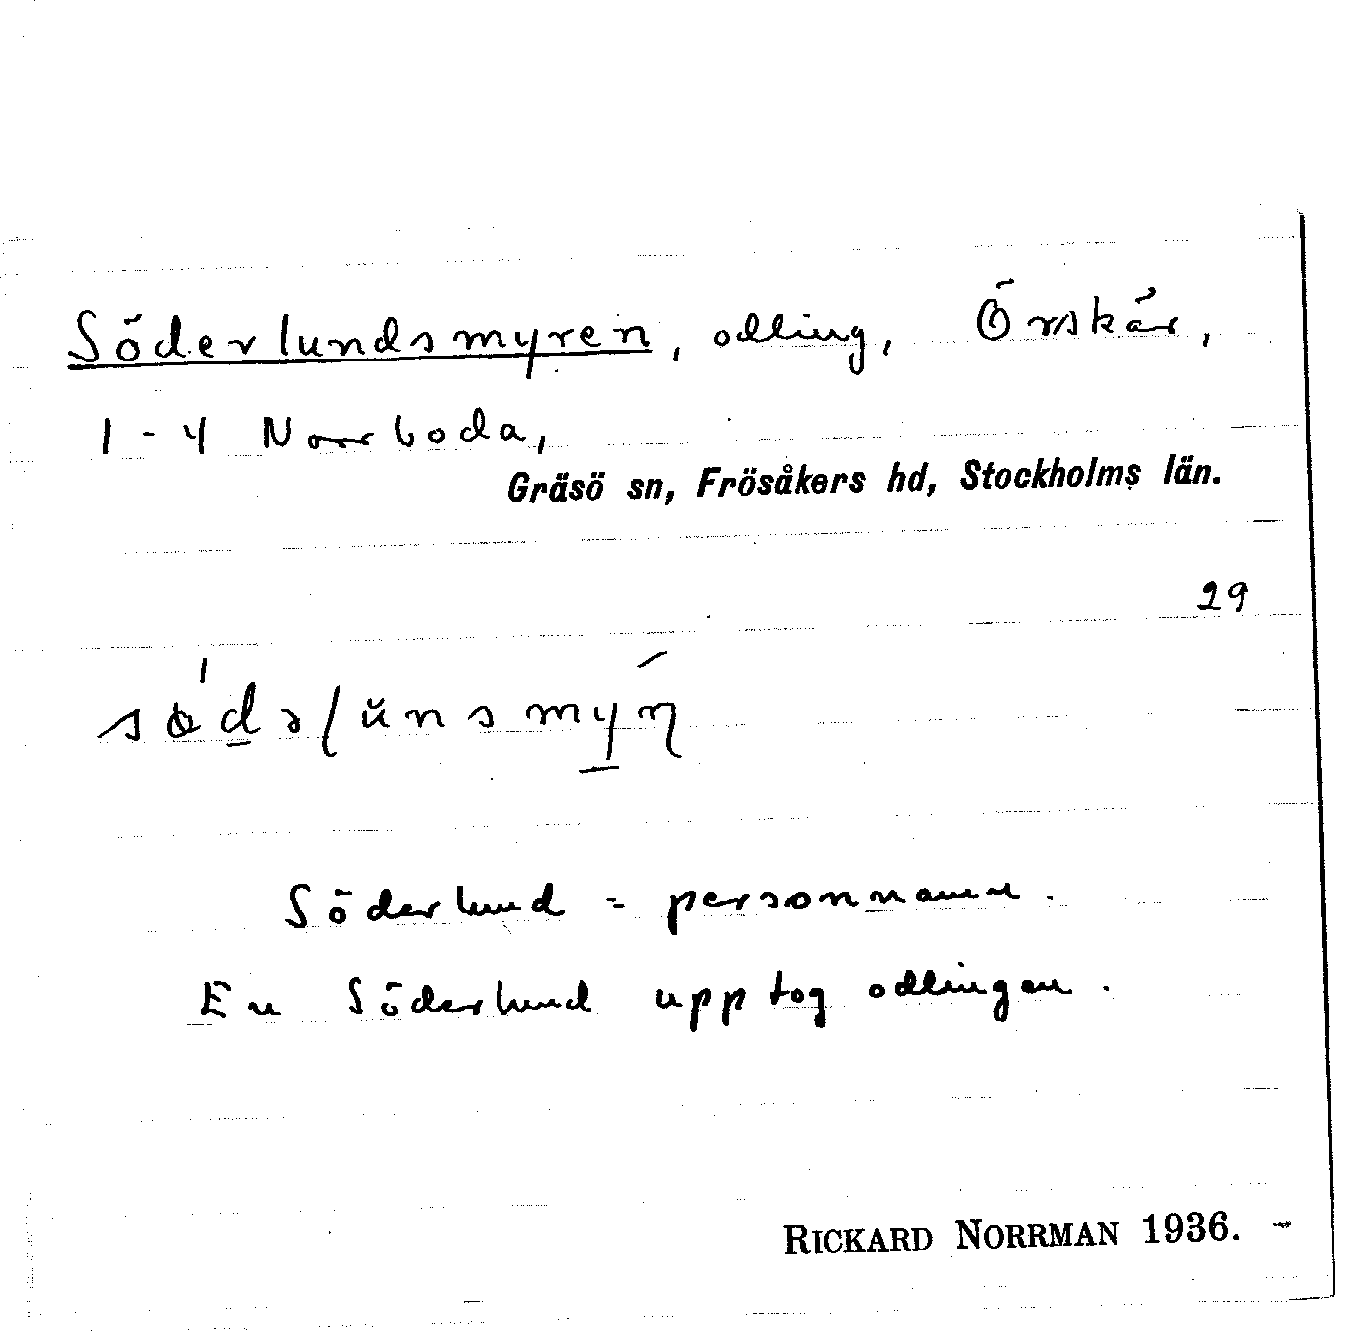 Söderlundsmyren, odling, Örskär,
1-4 Norrboda,
Gräsö sn, Frösåkers hd, Stockholms län.
29
Söderlund = personnamn.
En Söderlund upptog odlingen.
RICKARD NORRMAN 1936. -